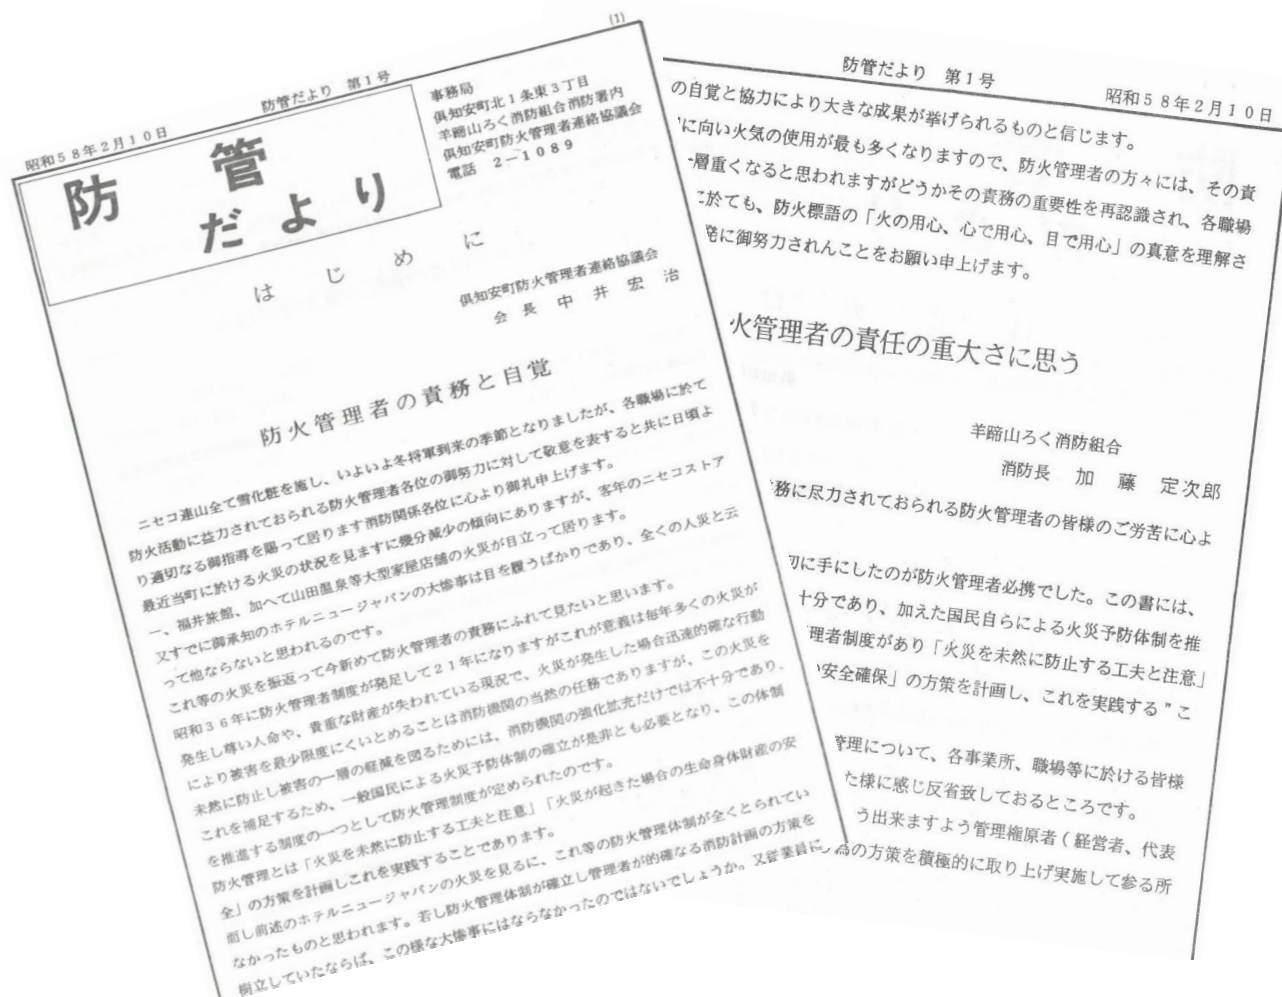 (1)
昭和58年2月10日
防管だより 第1号
防管
だより
事務局
倶知安町北1条東3丁目
羊蹄山ろく消防組合消防署内
倶知安町防火管理者連絡協議会
電話 2-1089
はじめに
倶知安町防火管理者連絡協議会
会長 中井宏治
防火管理者の責務と自覚
ニセコ連山全て雪化粧を施し、いよいよ冬将軍到来の季節となりましたが、各職場に於て
防火活動に益力されておられる防火管理者各位の御努力に対して敬意を表すると共に日頃よ
り適切なる御指導を賜って居ります消防関係各位に心より御礼申上げます。
最近当町に於ける火災の状況を見ますに幾分減少の傾向にありますが、客年のニセコストア
ー、福井旅館、加へて山田温泉等大型家屋店舗の火災が目立って居ります。
又すでに御承知のホテルニュージャパンの大惨事は目を履うばかりであり、全くの人災と云
って他ならないと思われるのです。
これ等の火災を振返って今新めて防火管理者の責務にふれて見たいと思います。
昭和36年に防火管理者制度が発足して21年になりますがこれが意義は毎年多くの火災が
発生し尊い人命や、貴重な財産が失われている現況で、火災が発生した場合迅速的確な行動
により被害を最少限度にくいとめることは消防機関の当然の任務でありますが、この火災を
未然に防止し被害の一層の軽減を図るためには、消防機関の強化拡充だけでは不十分であり、
これを補足するため、一般国民による火災予防体制の確立が是非とも必要となり、この体制
を推進する制度の一つとして防火管理制度が定められたのです。
防火管理とは「火災を未然に防止する工夫と注意」「火災が起きた場合の生命身体財産の安
全」の方策を計画しこれを実践することであります。
而し前述のホテルニュージャパンの火災を見るに、これ等の防火管理体制が全くとられてい
なかったものと思われます。若し防火管理体制が確立し管理者が的確なる消防計画の方策を
樹立していたならば、この様な大惨事にはならなかったのではないでしょうか。又従業員に
防管だより 第1号
昭和58年2月10日
の自覚と協力により大きな成果が挙げられるものと信じます。
に向い火気の使用が最も多くなりますので、防火管理者の方々には、その責
層重くなると思われますがどうかその責務の重要性を再認識され、各職場
に於ても、防火標語の「火の用心、心で用心、目で用心」の真意を理解さ
発に御努力されんことをお願い申上げます。
火管理者の責任の重大さに思う
羊蹄山ろく消防組合
消防長 加藤定次郎
務に尽力されておられる防火管理者の皆様のご労苦に心よ
初に手にしたのが防火管理者必携でした。この書には、
十分であり、加えた国民自らによる火災予防体制を推
理者制度があり「火災を未然に防止する工夫と注意」
安全確保」の方策を計画し、これを実践する”こ
管理について、各事業所、職場等に於ける皆様
た様に感じ反省致しておるところです。
う出来ますよう管理権原者(経営者、代表
為の方策を積極的に取り上げ実施して参る所